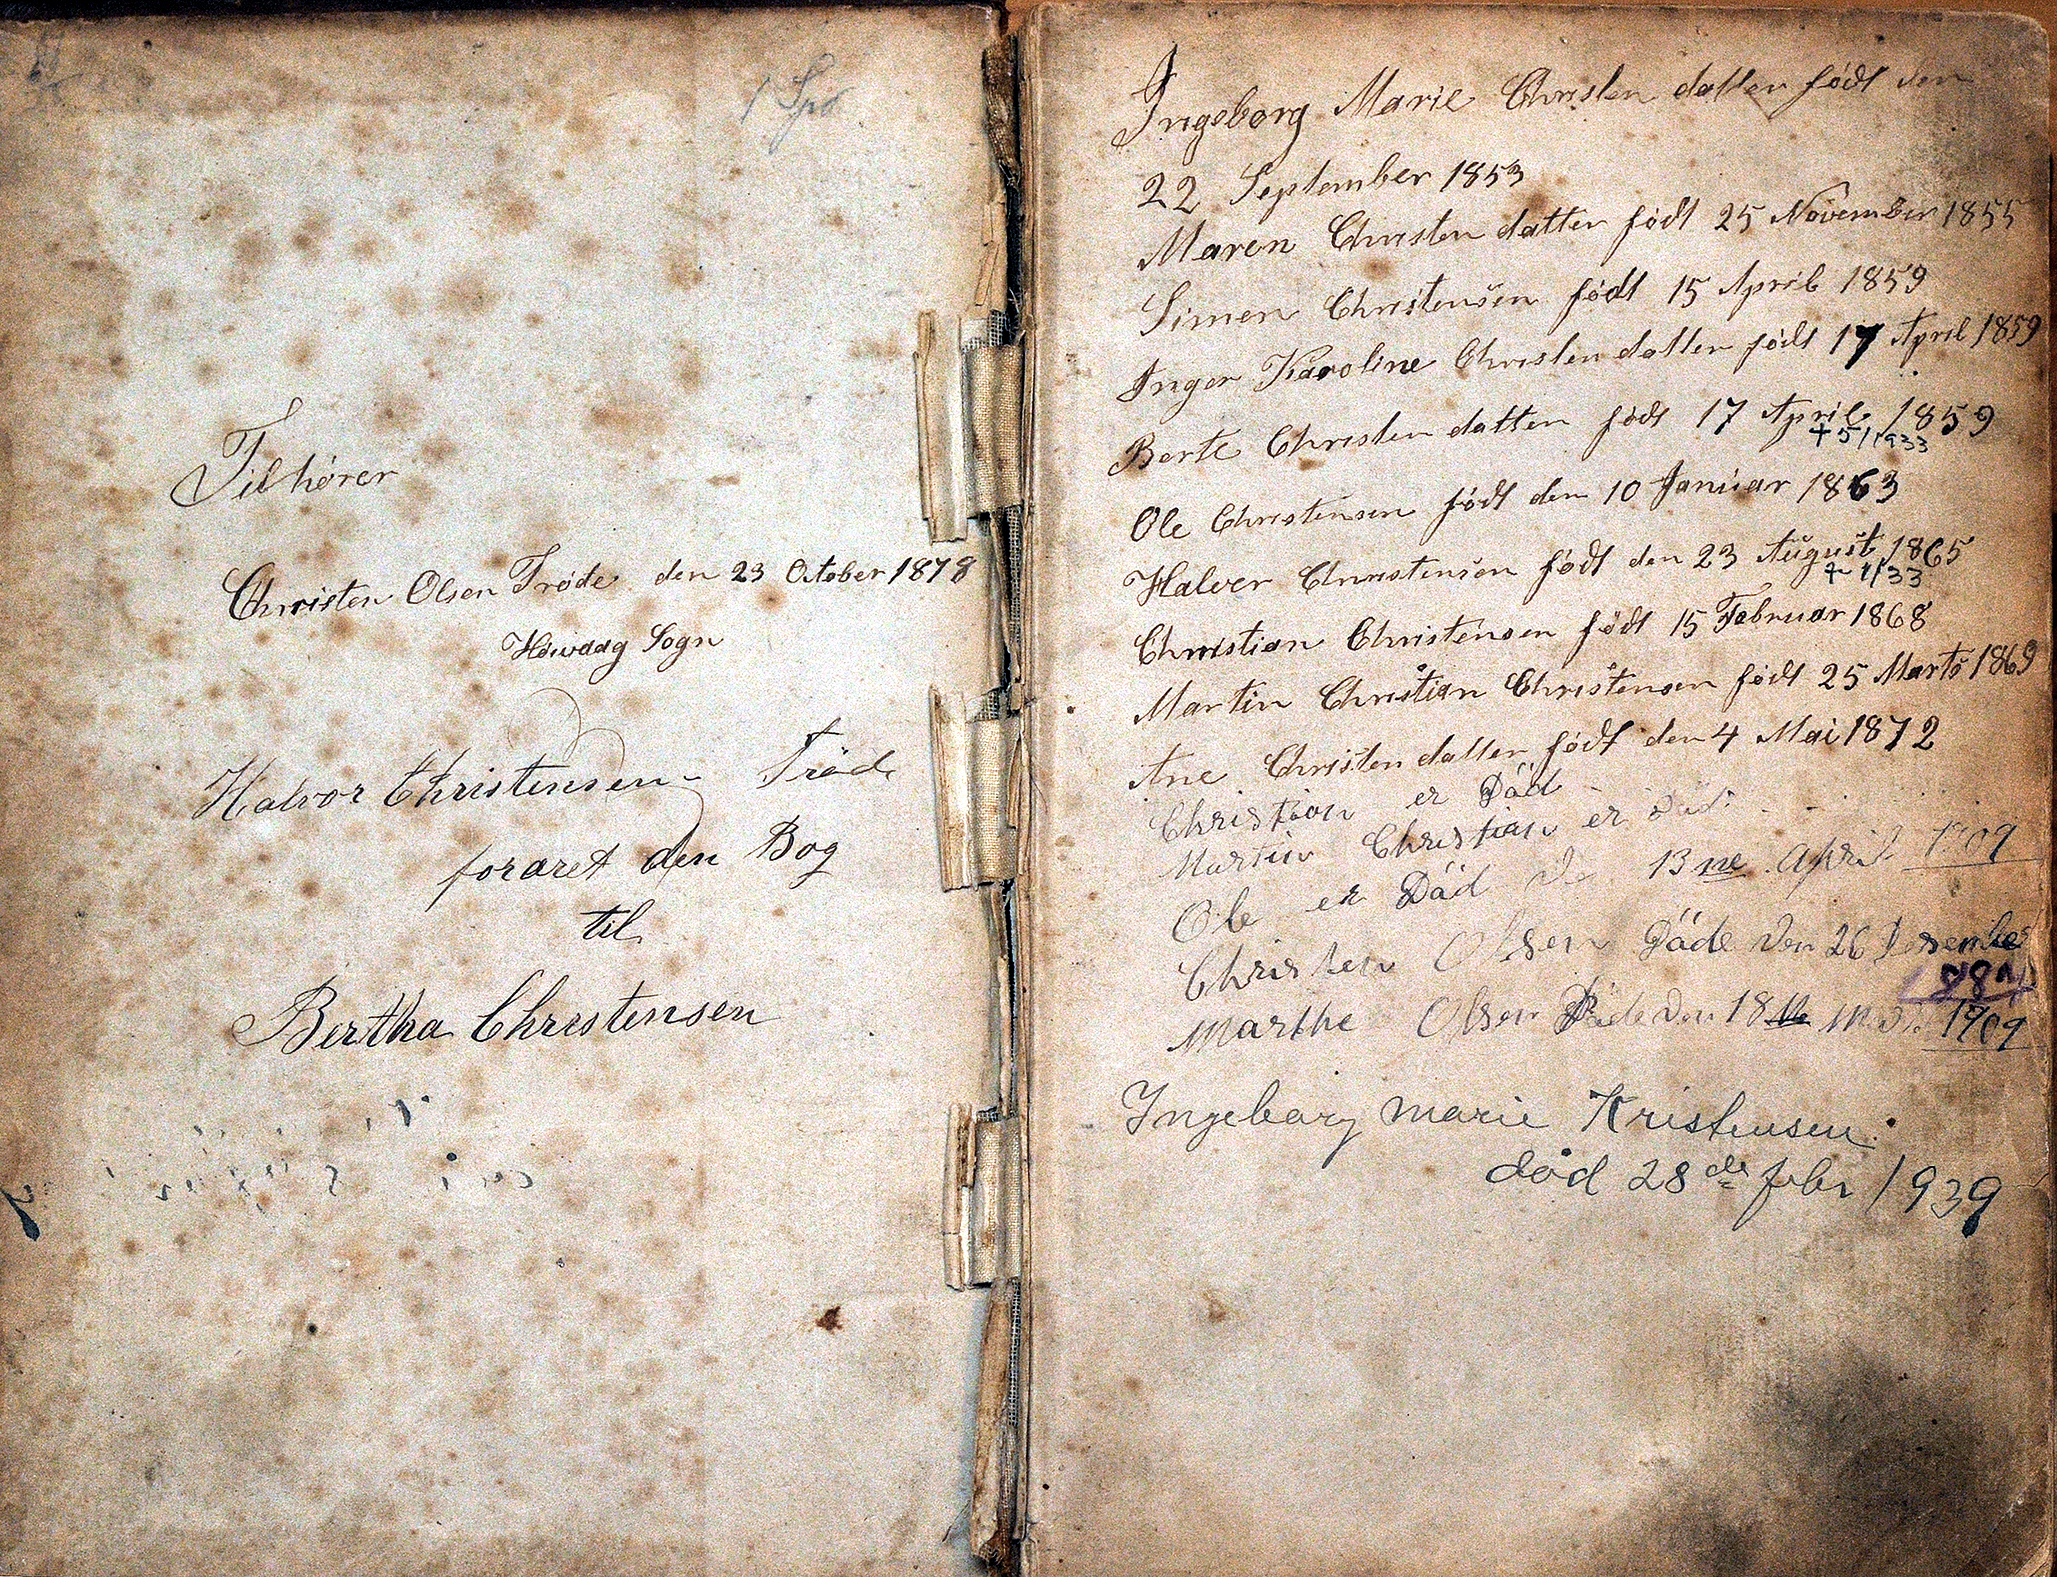 Tilhører
Christen Olsen Trøde den 23 October 1878
Høivaag Sogn
Halvor Christensen Trøde
foraret den Bog
til
Bertha Christensen
Ingeborg Marie Christen datter født den
22 September 1853
Maren Christen datter født 25 November 1855
Simen Christensen født 15 April 1859
Inger Karoline Christen datter født 17 April 1859
Berte Christen datter født 17 April 1859
+ 5/1 1933
Ole Christensen født den 10 Januar 1863
Halver Christensen født den 23 August 1865
+ 1/33
Christian Christensen født 15 Februar 1868
Martin Christian Christensen født 25 Marts 1869
Ane Christen datter født den 4 Mai 1872
Christian er Död
Martin Christian er Död
Ole er Död 13 ne April 1909
Christen Olsen Döde Den 26 Desember
Marthe Olsen Döde Den 18 1909
Ingeborg Marie Kristensen
död 28 de febr 1939